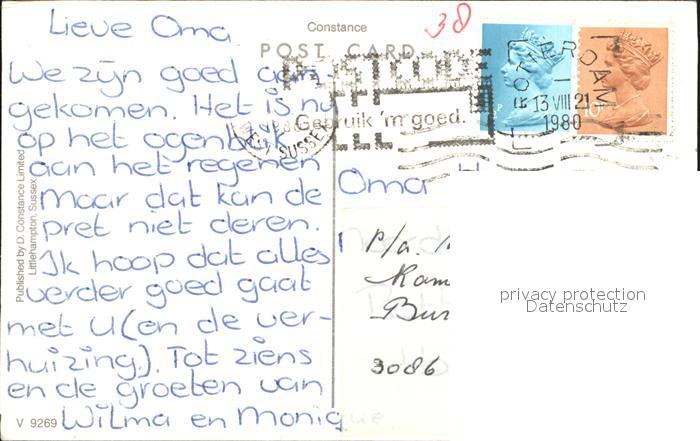 Lieve Oma
Constance
38
POST CARD
We zijn goed aan-
gekomen. Het is nu
op het ogenblik
aan het regenen
maar dat kan de
pret niet deren.
Ik hoop dat alles
verder goed gaat
met U (en de ver-
huizing.). Tot ziens
en de groeten van
Wilma en Monique
V 9269
Published by D. Constance Limited
Littlehampton, Sussex
POSTCODE
Gebruik 'm goed.
SUSSEX
13 VIII 21
1980
Oma
P/a.
3086
privacy protection
Datenschutz